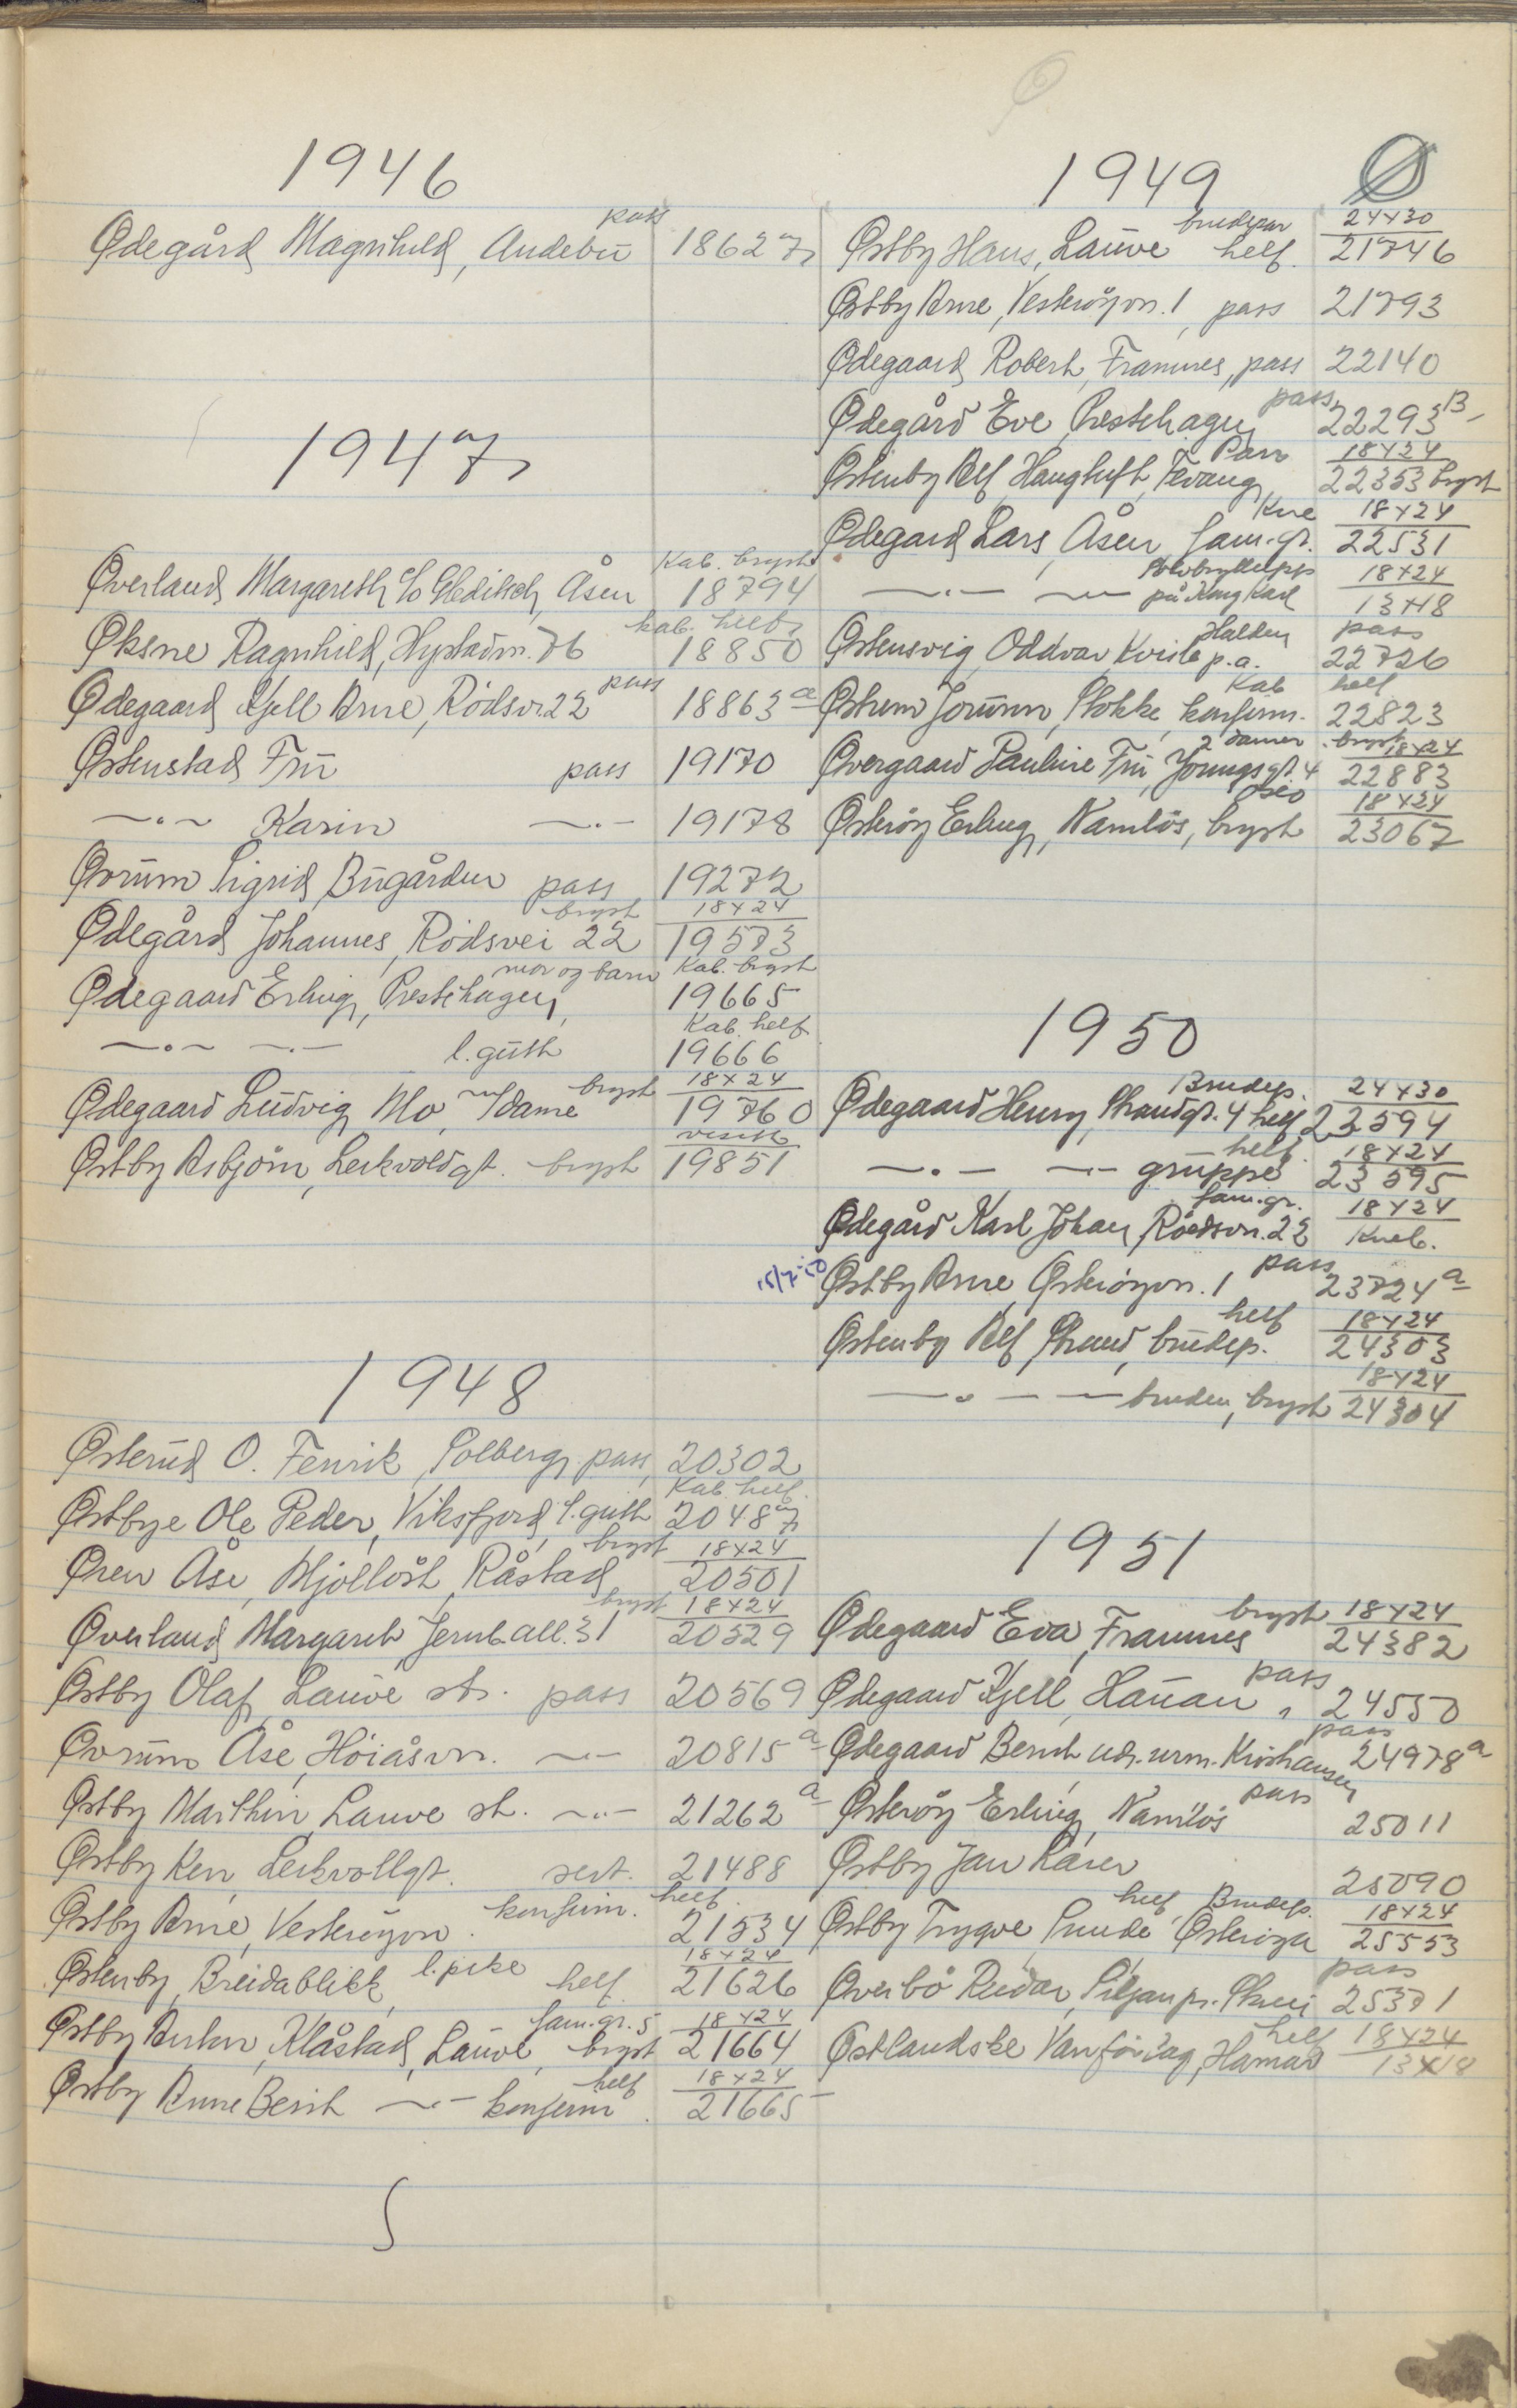 1946
pass
Ødegård Magnhild, Andebu 18627
1947
Kab. bryst
Øverland Margareth c/o Gleditsch, Åsen 18794
kab. helf
Øksne Ragnhild, Hystadvn. 76 18850
pass
Ødegaard Kjell Arne, Rødsv. 22 18863 a
Østenstad Fru pass 19170
—〃— Karin —〃— 19178
Øvrum Sigrid, Bugården pass 19272
bryst 18x24
Ødegård Johannes, Rødsvei 22 19573
mor og barn Kab. bryst
Ødegaard Erling, Prestehagen, 19665
Kab. helf.
—〃— —〃— l. gutt 19666
bryst 18x24
Ødegaard Ludvig, Mo, m/dame 19760
visitt
Østby Asbjørn, Leikvoldgt. bryst 19851
1948
Østerud O. Fenrik, Solberg, pass, 20302
Kab. helf.
Østbye Ole Peder, Viksfjord, l. gutt 20487
bryst 18x24
Øren Åse, Mjølløst, Råstad, 20501
bryst 18x24
Øverland Margareth, Jernb.all. 31 20529
Østby Olaf, Lauve st. pass 20569
Øvrum Åse, Høiåsvn. —〃— 20815 a
Østby Marthin, Lauve st. —〃— 21262 a
Østby Ken, Leikvollgt. sert. 21488
konfirm. helf.
Østby Arne, Vesterøyvn. 21534
l. pike 18x24
Østenby, Breidablikk, helf. 21626
fam.gr. 5 18x24
Østby Anton, Klåstad, Lauve, bryst 21664
helf 18x24
Østby Anne Berit —〃— konfirm. 21665
1949 Ø
brudepar 24x30
Østby Hans, Lauve helf. 21746
Østby Arne, Vesterøyvn. 1, pass 21793
Ødegaard Robert, Framnes, pass 22140
pass
Ødegård Eve, Prestehagen 22293 B
Pass 18x24
Østenby Alf, Haughuft, Tevang, 22353 bryst
Kne 18x24
Ødegard Lars, Åsen, fam.gr. 22531
Sølvbryllupp 18x24
—〃— —〃— på Kong Karl 13x18
Halden pass
Østensvig Oddvar Kvisle p.a. 22726
Kab helf
Østrem Jorunn, Stokke, konfirm. 22823
2 damer bryst 18x24
Øvergaard Pauline Fru, Youngsgt. 4 22883
Oslo 18x24
Østrøy Erling, Namløs, bryst 23067
1950
Brudep. 24x30
Ødegaard Henry, Strandgt. 4 helf 23594
helf. 18x24
—〃— —〃— gruppe 23595
fam.gr. 18x24
Ødegård Karl Johan, Rødsvn. 22 Kneb.
15/7-50 pass
Østby Arne, Østerøyvn. 1 23724 a
helf 18x24
Østenby Alf, Strand, brudep. 24303
18x24
—〃— — bruden, bryst 24304
1951
bryst 18x24
Ødegaard Eva, Framnes 24382
pass
Ødegaard Kjell, Hauan, 24550
pass
Ødegaard Bernt adr. urm. Kristiansen 24978 a
pass
Østerøy Erling, Namløs 25011
Østby Jan Kåre 25090
helf, Brudep. 18x24
Østby Trygve, Sunde Østerøya 25553
pass
Øverbø Reidar, Siljan pr. Skien 25371
helf 18x24
Østlandske Vanførelag, Hamar 13x18